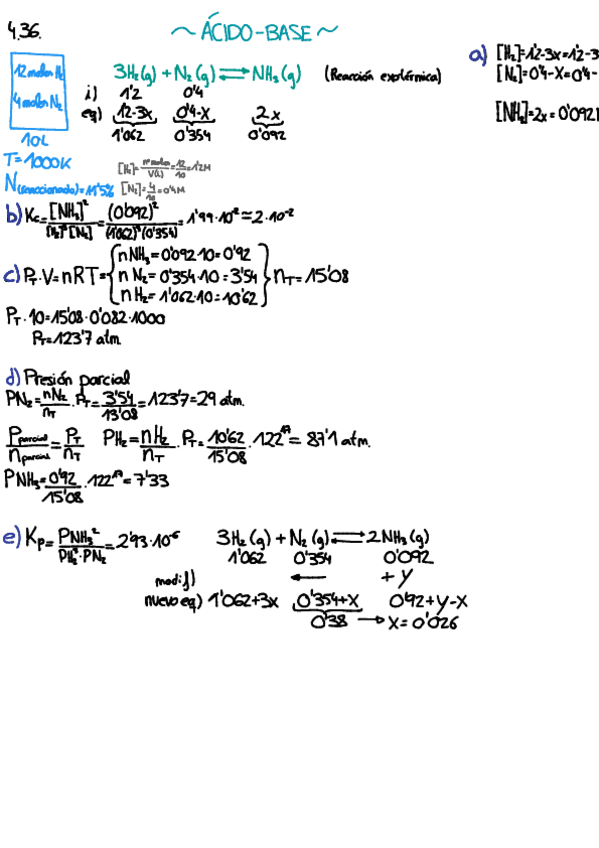 4.36.
~ÁCIDO-BASE~
12 moles H₂
4 moles N₂
10L
T=1000K
N(reaccionado)=11'5%
3H₂(g)+N₂(g)⇌NH₃(g) (Reacción exotérmica)
i) 1'2 0'4
eq) 1'2-3x 0'4-x 2x
1'062 0'354 0'092
[H₂]=nº moles/V(L)=12/10=1'2M
[N₂]=4/10=0'4M
a) [H₂]=1'2-3x=1'2-3
[N₂]=0'4-x=0'4-
[NH₃]=2x=0'092
b) Kc=[NH₃]²/[H₂]³[N₂]=(0'092)²/(1'062)³(0'354)=1'99·10⁻²≈2·10⁻²
c) P_T·V=nRT={nNH₃=0'092·10=0'92
nN₂=0'354·10=3'54
nH₂=1'062·10=10'62} n_T=15'08
P_T·10=15'08·0'082·1000
P_T=123'7 atm.
d) Presión parcial
PN₂=nN₂/n_T·P_T=3'54/13'08=123'7=29 atm.
P parcial/n parcial=P_T/n_T PH₂=nH₂/n_T·P_T=10'62/15'08·122'¹⁷=87'1 atm.
PNH₃=0'92/15'08·122'¹⁷=7'33
e) Kp=PNH₃²/PH₂³·PN₂=2'93·10⁻⁶ 3H₂(g)+N₂(g)⇌2NH₃(g)
1'062 0'354 0'092
modif) ← +y
nuevo eq) 1'062+3x 0'354+x 0'92+y-x
0'38 → x=0'026